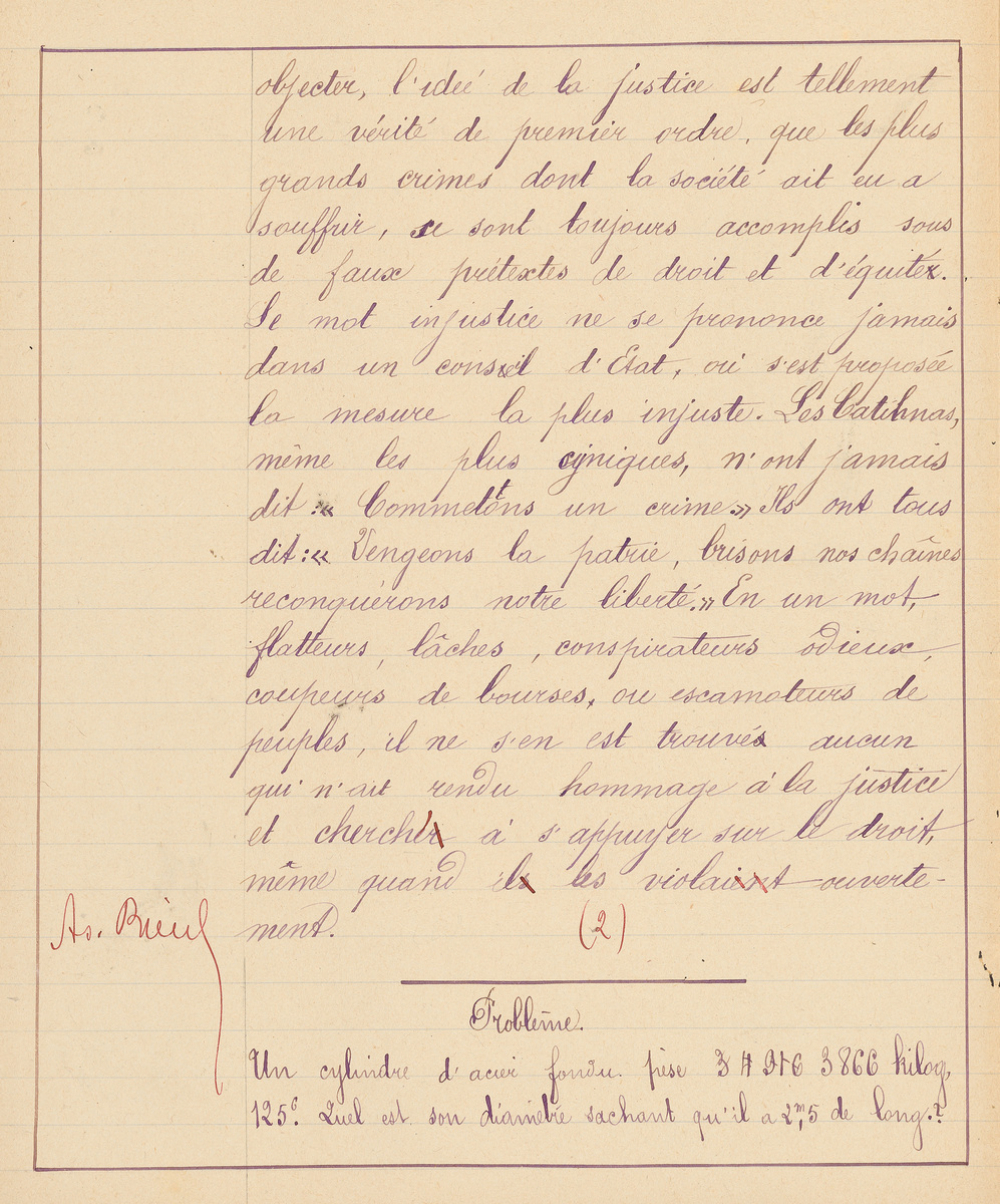 objecter, l'idée de la justice est tellement
une vérité de premier ordre, que les plus
grands crimes dont la société ait eu a
souffrir, se sont toujours accomplis sous
de faux prétextes de droit et d'équité.
Le mot injustice ne se prononce jamais
dans un conseil d'Etat, où s'est proposée
la mesure la plus injuste. Les Catilinas,
même les plus cyniques, n'ont jamais
dit : « Commettons un crime.» Ils ont tous
dit : « Vengeons la patrie, brisons nos chaînes
reconquérons notre liberté.» En un mot,
flatteurs, lâches, conspirateurs odieux,
coupeurs de bourses, ou escamoteurs de
peuples, il ne s'en est trouvé aucun
qui n'ait rendu hommage à la justice
et cherché à s'appuyer sur le droit,
même quand ils les violaient ouverte-
As. Bieul ment. (2)
Problème.
Un cylindre d'acier fondu pèse 3 4 976 3866 kilog,
125ᶜ. Quel est son diamètre sachant qu'il a 2,ᵐ5 de long.?